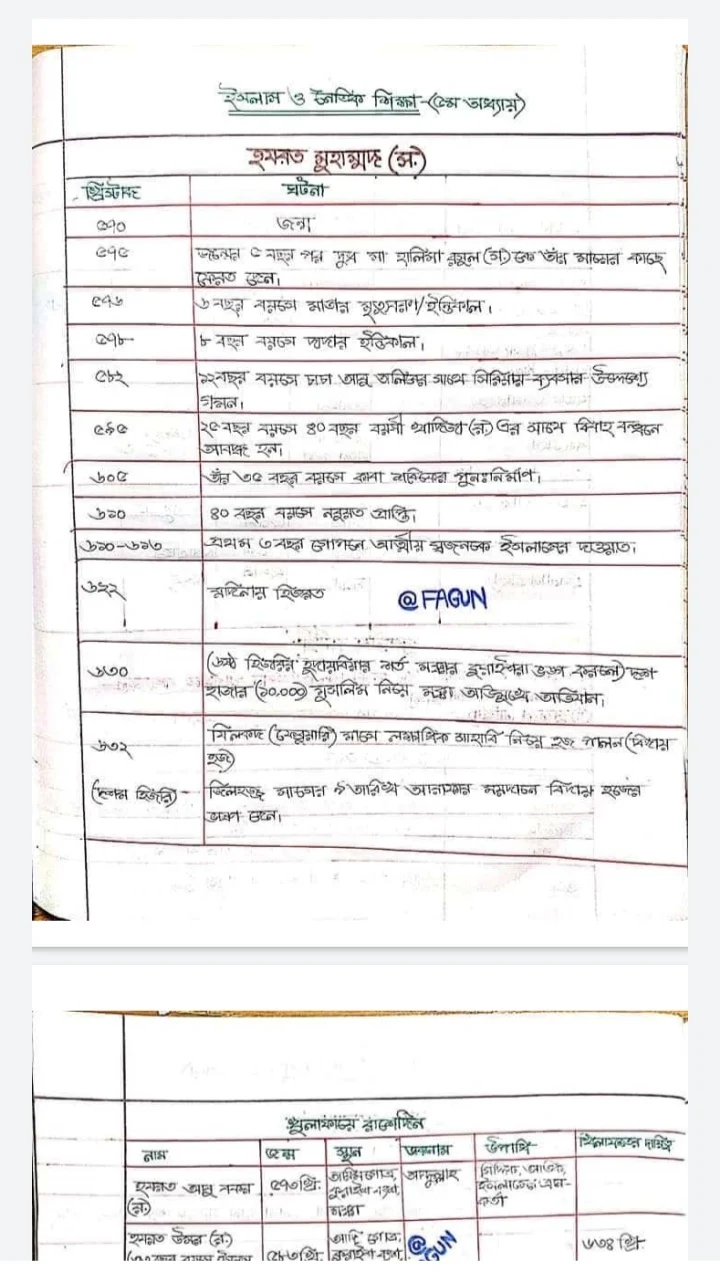 ইসলাম ও নৈতিক শিক্ষা-(৫ম অধ্যায়)
হযরত মুহাম্মদ (স.)
খ্রিস্টাব্দ ঘটনা
৫৭০ জন্ম
৫৭৫ জন্মের ৫ বছর পর দুধ মা হালিমা রাসুল (স) কে তাঁর মায়ের কাছে
ফেরত দেন।
৫৭৬ ৬ বছর বয়সে মাতার মৃত্যুবরণ/ইন্তিকাল।
৫৭৮ ৮ বছর বয়সে দাদার ইন্তিকাল।
৫৮২ ১২বছর বয়সে চাচা আবু তালিবের সাথে সিরিয়ায় ব্যবসার উদ্দেশ্যে
গমন।
৫৯৫ ২৫ বছর বয়সে ৪০ বছর বয়সী খাদিজা (রা) এর সাথে বিবাহ বন্ধনে
আবদ্ধ হন।
৬০৫ তাঁর ৩৫ বছর বয়সে কাবা শরিফের পুনঃনির্মাণ।
৬১০ ৪০ বছর বয়সে নবুয়ত প্রাপ্তি।
৬১০-৬১৩ প্রথম ৩ বছর গোপনে আত্মীয় স্বজনকে ইসলামের দাওয়াত।
৬২২ মদিনায় হিজরত @FAGUN
৬৩০ (৬ষ্ঠ হিজরির হুদায়বিয়ার শর্ত মক্কার কুরাইশরা ভঙ্গ করলে) দশ
হাজার (১০,০০০) মুসলিম নিয়ে মক্কা অভিমুখে অভিযান।
৬৩২ জিলকদ (ফেব্রুয়ারি) মাসে লক্ষাধিক সাহাবি নিয়ে হজ পালন (বিদায়
হজ)
(দশম হিজরি) - জিলহজ্জ মাসের ৯ তারিখ আরাফার ময়দানে বিদায় হজের
ভাষণ দেন।
খুলাফায়ে রাশেদিন
নাম জন্ম স্থান উপাধি খিলাফতের দায়িত্ব
হযরত আবু বকর ৫৭৩ খ্রি: আব্দুল্লাহ সিদ্দিক, আতিক,
(রা) কুরাইশ বংশ,
মক্কা
হযরত উমর (রা) ৬৩৪ খ্রি.